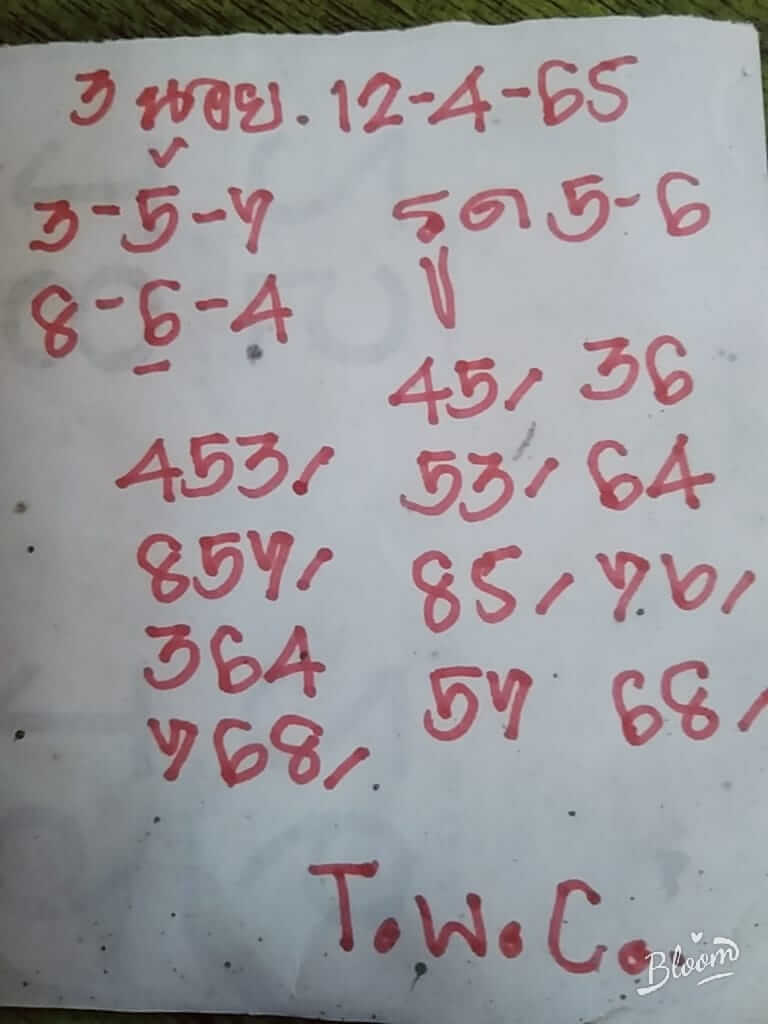 3 นอย. 12-4-65
3-5-7 รูด 5-6
8-6-4
45/ 36
453/ 53/ 64
857/ 85/ 76/
364
768/ 57 68/
T.W.C.
Bloom